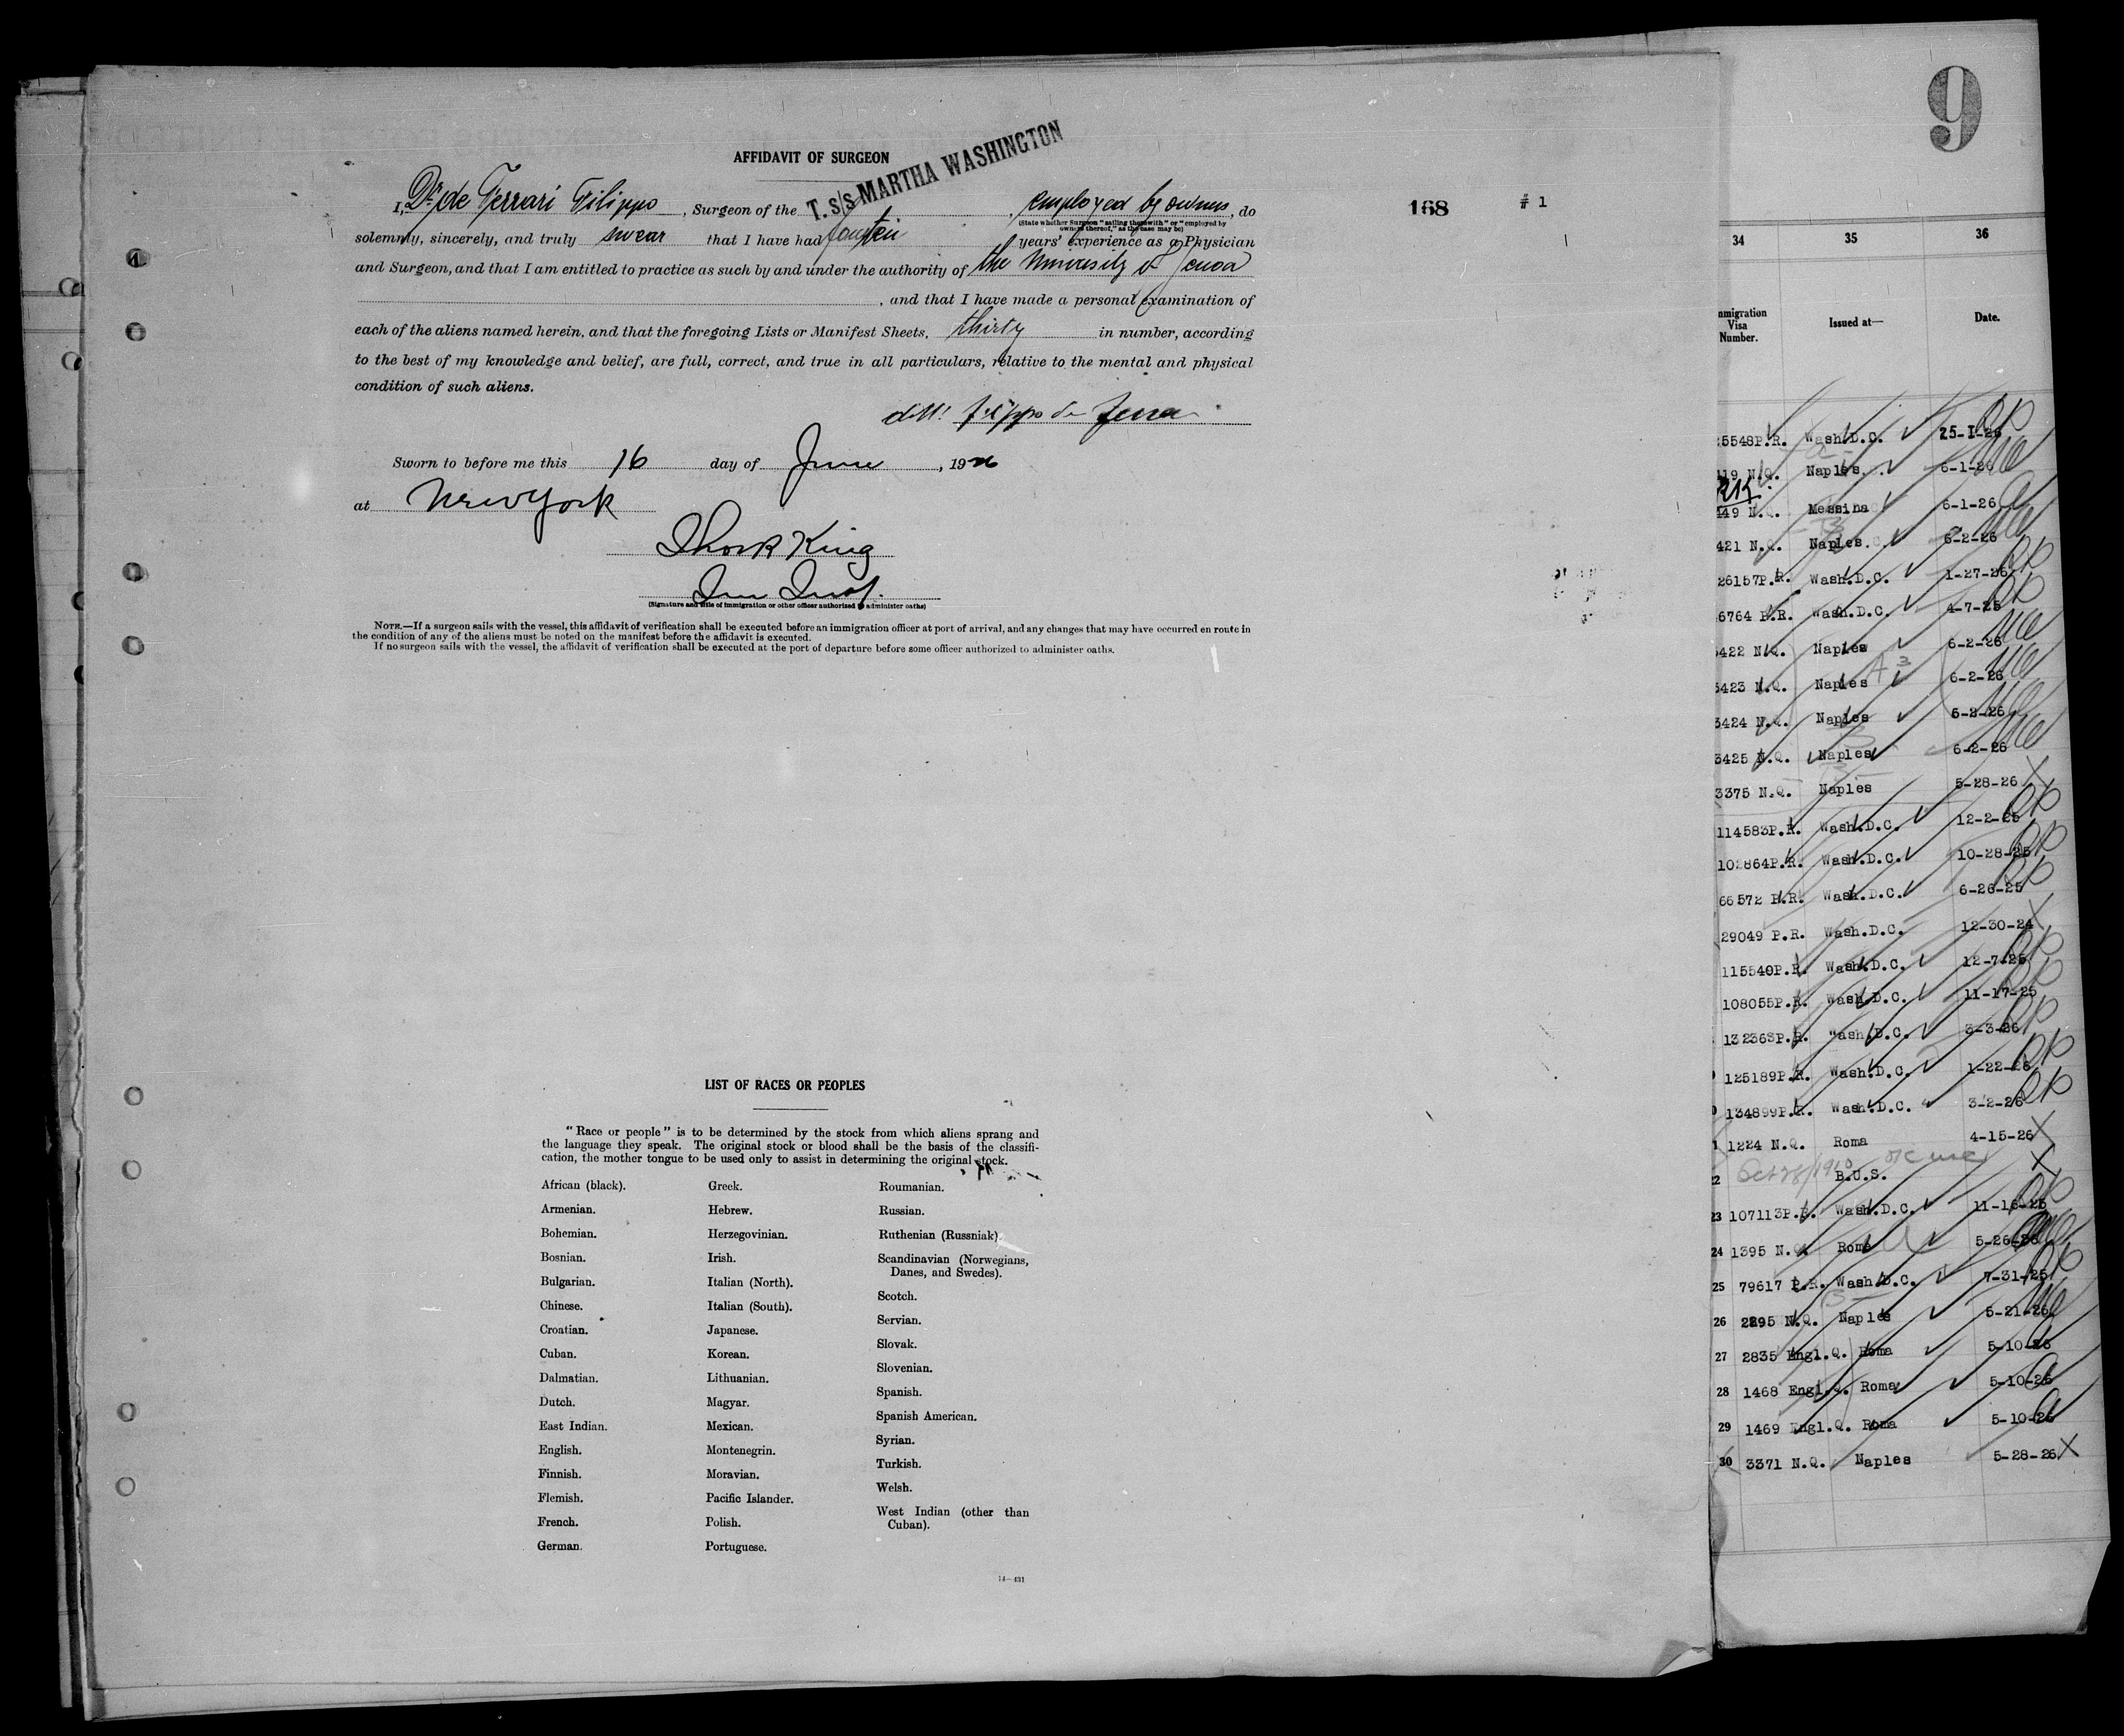 AFFIDAVIT OF SURGEON
T. s/s MARTHA WASHINGTON
I, Dr de Ferrari Filippo, Surgeon of the , employed by owners, do
(State whether Surgeon "sailing therewith" or "employed by
owners thereof," as the case may be)
solemnly, sincerely, and truly swear that I have had years' experience as a Physician
and Surgeon, and that I am entitled to practice as such by and under the authority of the University of Genoa
, and that I have made a personal examination of
each of the aliens named herein, and that the foregoing Lists or Manifest Sheets, thirty in number, according
to the best of my knowledge and belief, are full, correct, and true in all particulars, relative to the mental and physical
condition of such aliens.
Filippo de Ferrari
Sworn to before me this 16 day of June, 1926
at New York
King
Imm Insp.
(Signature and title of immigration or other officer authorized to administer oaths)
NOTE.—If a surgeon sails with the vessel, this affidavit of verification shall be executed before an immigration officer at port of arrival, and any changes that may have occurred en route in
the condition of any of the aliens must be noted on the manifest before the affidavit is executed.
If no surgeon sails with the vessel, the affidavit of verification shall be executed at the port of departure before some officer authorized to administer oaths.
168 # 1
LIST OF RACES OR PEOPLES
"Race or people" is to be determined by the stock from which aliens sprang and
the language they speak. The original stock or blood shall be the basis of the classifi-
cation, the mother tongue to be used only to assist in determining the original stock.
African (black).
Armenian.
Bohemian.
Bosnian.
Bulgarian.
Chinese.
Croatian.
Cuban.
Dalmatian.
Dutch.
East Indian.
English.
Finnish.
Flemish.
French.
German.
Greek.
Hebrew.
Herzegovinian.
Irish.
Italian (North).
Italian (South).
Japanese.
Korean.
Lithuanian.
Magyar.
Mexican.
Montenegrin.
Moravian.
Pacific Islander.
Polish.
Portuguese.
Roumanian.
Russian.
Ruthenian (Russniak).
Scandinavian (Norwegians,
Danes, and Swedes).
Scotch.
Servian.
Slovak.
Slovenian.
Spanish.
Spanish American.
Syrian.
Turkish.
Welsh.
West Indian (other than
Cuban).
14—431
9
34 35 36
mmigration
Visa
Number.
Issued at—
Date.
5548P.R. Wash.D.C. 25-I-26
419 N.Q. Naples. 6-1-26
449 N.Q. Messina 6-1-26
421 N.Q. Naples. 6-2-26
26157P.R. Wash.D.C. 1-27-26
6764 P.R. Wash.D.C 4-7-25
3422 N.Q. Naples 6-2-26
3423 N.Q. Naples 6-2-26
3424 N.Q. Naples 6-2-26
3425 N.Q. Naples 6-2-26
3375 N.Q. Naples 5-28-26
114583P.R. Wash.D.C. 12-2-25
102864P.R. Wash.D.C. 10-28-25
66572 P.R. Wash.D.C. 6-26-25
29049 P.R. Wash.D.C. 12-30-24
115540P.R. Wash.D.C. 12-7-25
108055P.R. Wash.D.C. 11-17-25
132363P.R. Wash.D.C. 3-3-26
125189P.R. Wash.D.C. 1-22-26
134899P.R. Wash.D.C. 3-2-26
1224 N.Q. Roma 4-15-26
Oct 28/1910 B.U.S.
23 107113P.R. Wash.D.C. 11-16-25
24 1395 N.Q. Roma 5-26-26
25 79617 P.R. Wash.D.C. 7-31-25
26 2895 N.Q. Naples 5-21-26
27 2835 Engl.Q. Roma 5-10-26
28 1468 Engl.Q. Roma 5-10-26
29 1469 Engl.Q. Roma 5-10-26
30 3371 N.Q. Naples 5-28-26